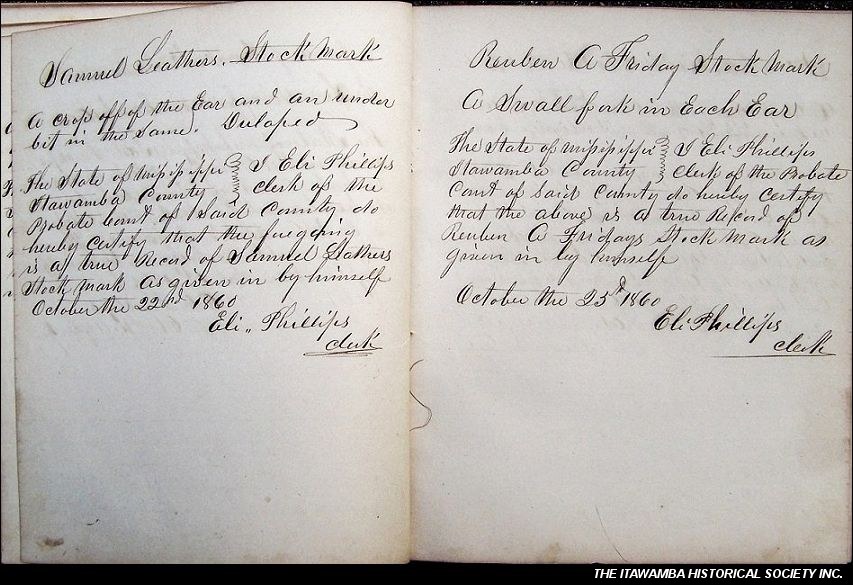 Samuel Leathers. Stock Mark
A crop off of the Ear and an under
bit in the Same. Dulaped
The State of Mississippi } I Eli Phillips
Itawamba County } clerk of the
Probate Court of Said County do
hereby certify that the foregoing
is a true Record of Samuel Leathers
Stock mark as given in by himself
October the 22nd 1860
Eli Phillips
clerk
Reuben A Friday Stock Mark
A Swall fork in Each Ear
The State of Mississippi } I Eli Phillips
Itawamba County } Clerk of the Probate
Court of Said County do hereby Certify
that the above is a true Record of
Reuben A Fridays Stock Mark as
given in by himself
October the 25th 1860
Eli Phillips
clerk
THE ITAWAMBA HISTORICAL SOCIETY INC.